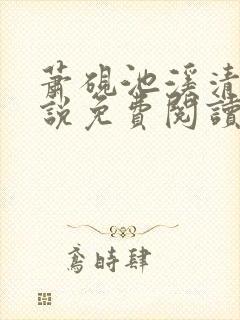 蕭硯池溪清
說免費閱讀
鳶時肆